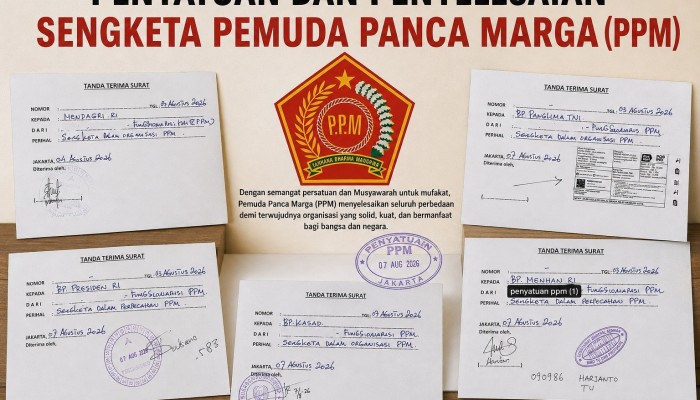 PENYATUAN DAN PENYELESAIAN
SENGKETA PEMUDA PANCA MARGA (PPM)
TANDA TERIMA SURAT
NOMOR : TGL. 03 AGUSTUS 2026
KEPADA : MENDAGRI RI
DARI :
PERIHAL : SENGKETA DALAM ORGANISASI PPM.
JAKARTA, 04 AGUSTUS 2026
Diterima oleh,
P.P.M
TANHANA DHARMA MANGRWA
Dengan semangat persatuan dan Musyawarah untuk mufakat,
Pemuda Panca Marga (PPM) menyelesaikan seluruh perbedaan
demi terwujudnya organisasi yang solid, kuat, dan bermanfaat
bagi bangsa dan negara.
TANDA TERIMA SURAT
NOMOR : TGL. 03 AGUSTUS 2026
KEPADA : BP. PANGLIMA TNI
DARI : PPM.
PERIHAL : SENGKETA DALAM ORGANISASI PPM.
JAKARTA, 07 AGUSTUS 2026
Diterima oleh,
TANDA TERIMA SURAT
NOMOR : 03 AGUSTUS 2026
KEPADA : BP. PRESIDEN RI
DARI : PPM.
PERIHAL : SENGKETA DALAM PERPECAHAN PPM.
JAKARTA, 07 AGUSTUS 2026
Diterima oleh,
07 AUG 2026
583
PENYATUAIN
PPM
07 AUG 2026
JAKARTA
TANDA TERIMA SURAT
NOMOR : TGL. 03 AGUSTUS 2026
KEPADA : BP. KASAD.
DARI : PPM.
PERIHAL : SENGKETA DALAM ORGANISASI PPM.
JAKARTA, 07 AGUSTUS 2026
Diterima oleh,
TANDA TERIMA SURAT
NOMOR : TGL. 03 AGUSTUS 2026
KEPADA : BP. MENHAN RI
DARI : PPM
penyatuan ppm (1)
PERIHAL : SENGKETA DALAM PERPECAHAN PPM.
JAKARTA, 07 AGUSTUS 2026
Diterima oleh,
090986 HARJANTO
TU